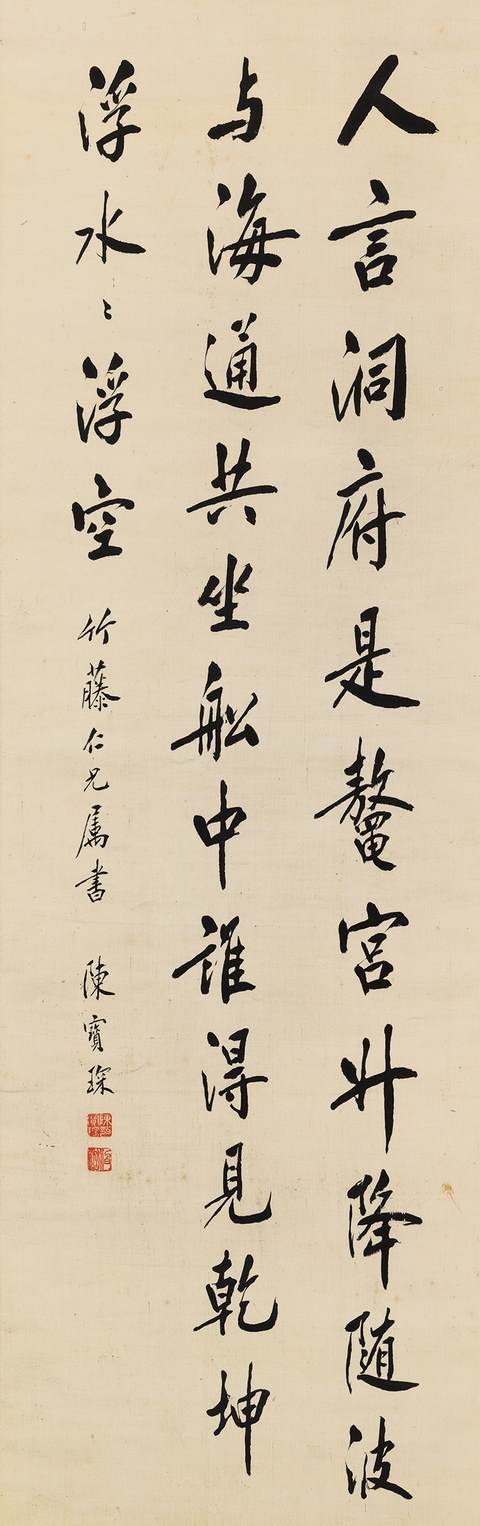 人言洞府是鼇宮升降随波
与海通共坐舩中誰得見乾坤
浮水〻浮空 竹藤仁兄属書 陳寶琛